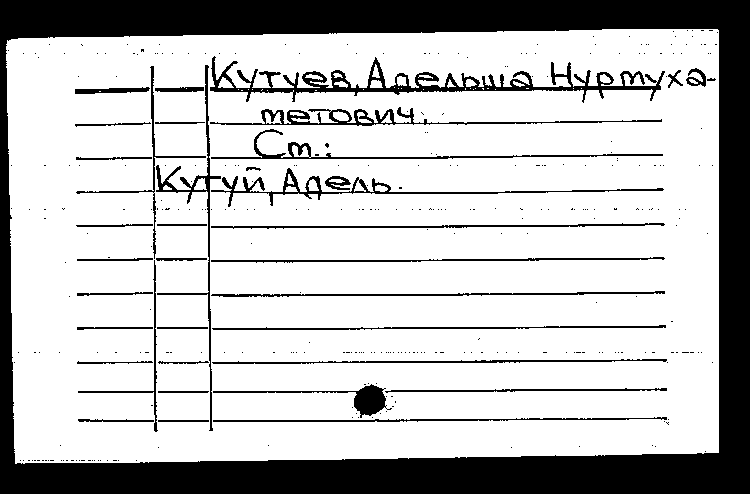 Кутуев, Адельша Нурмуха-
метович.
См.:
Кутуй, Адель.